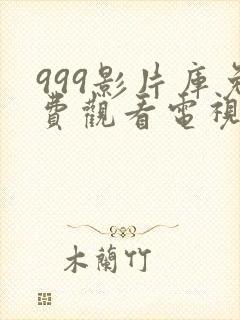 999影片庫免
費觀看電視
木蘭竹